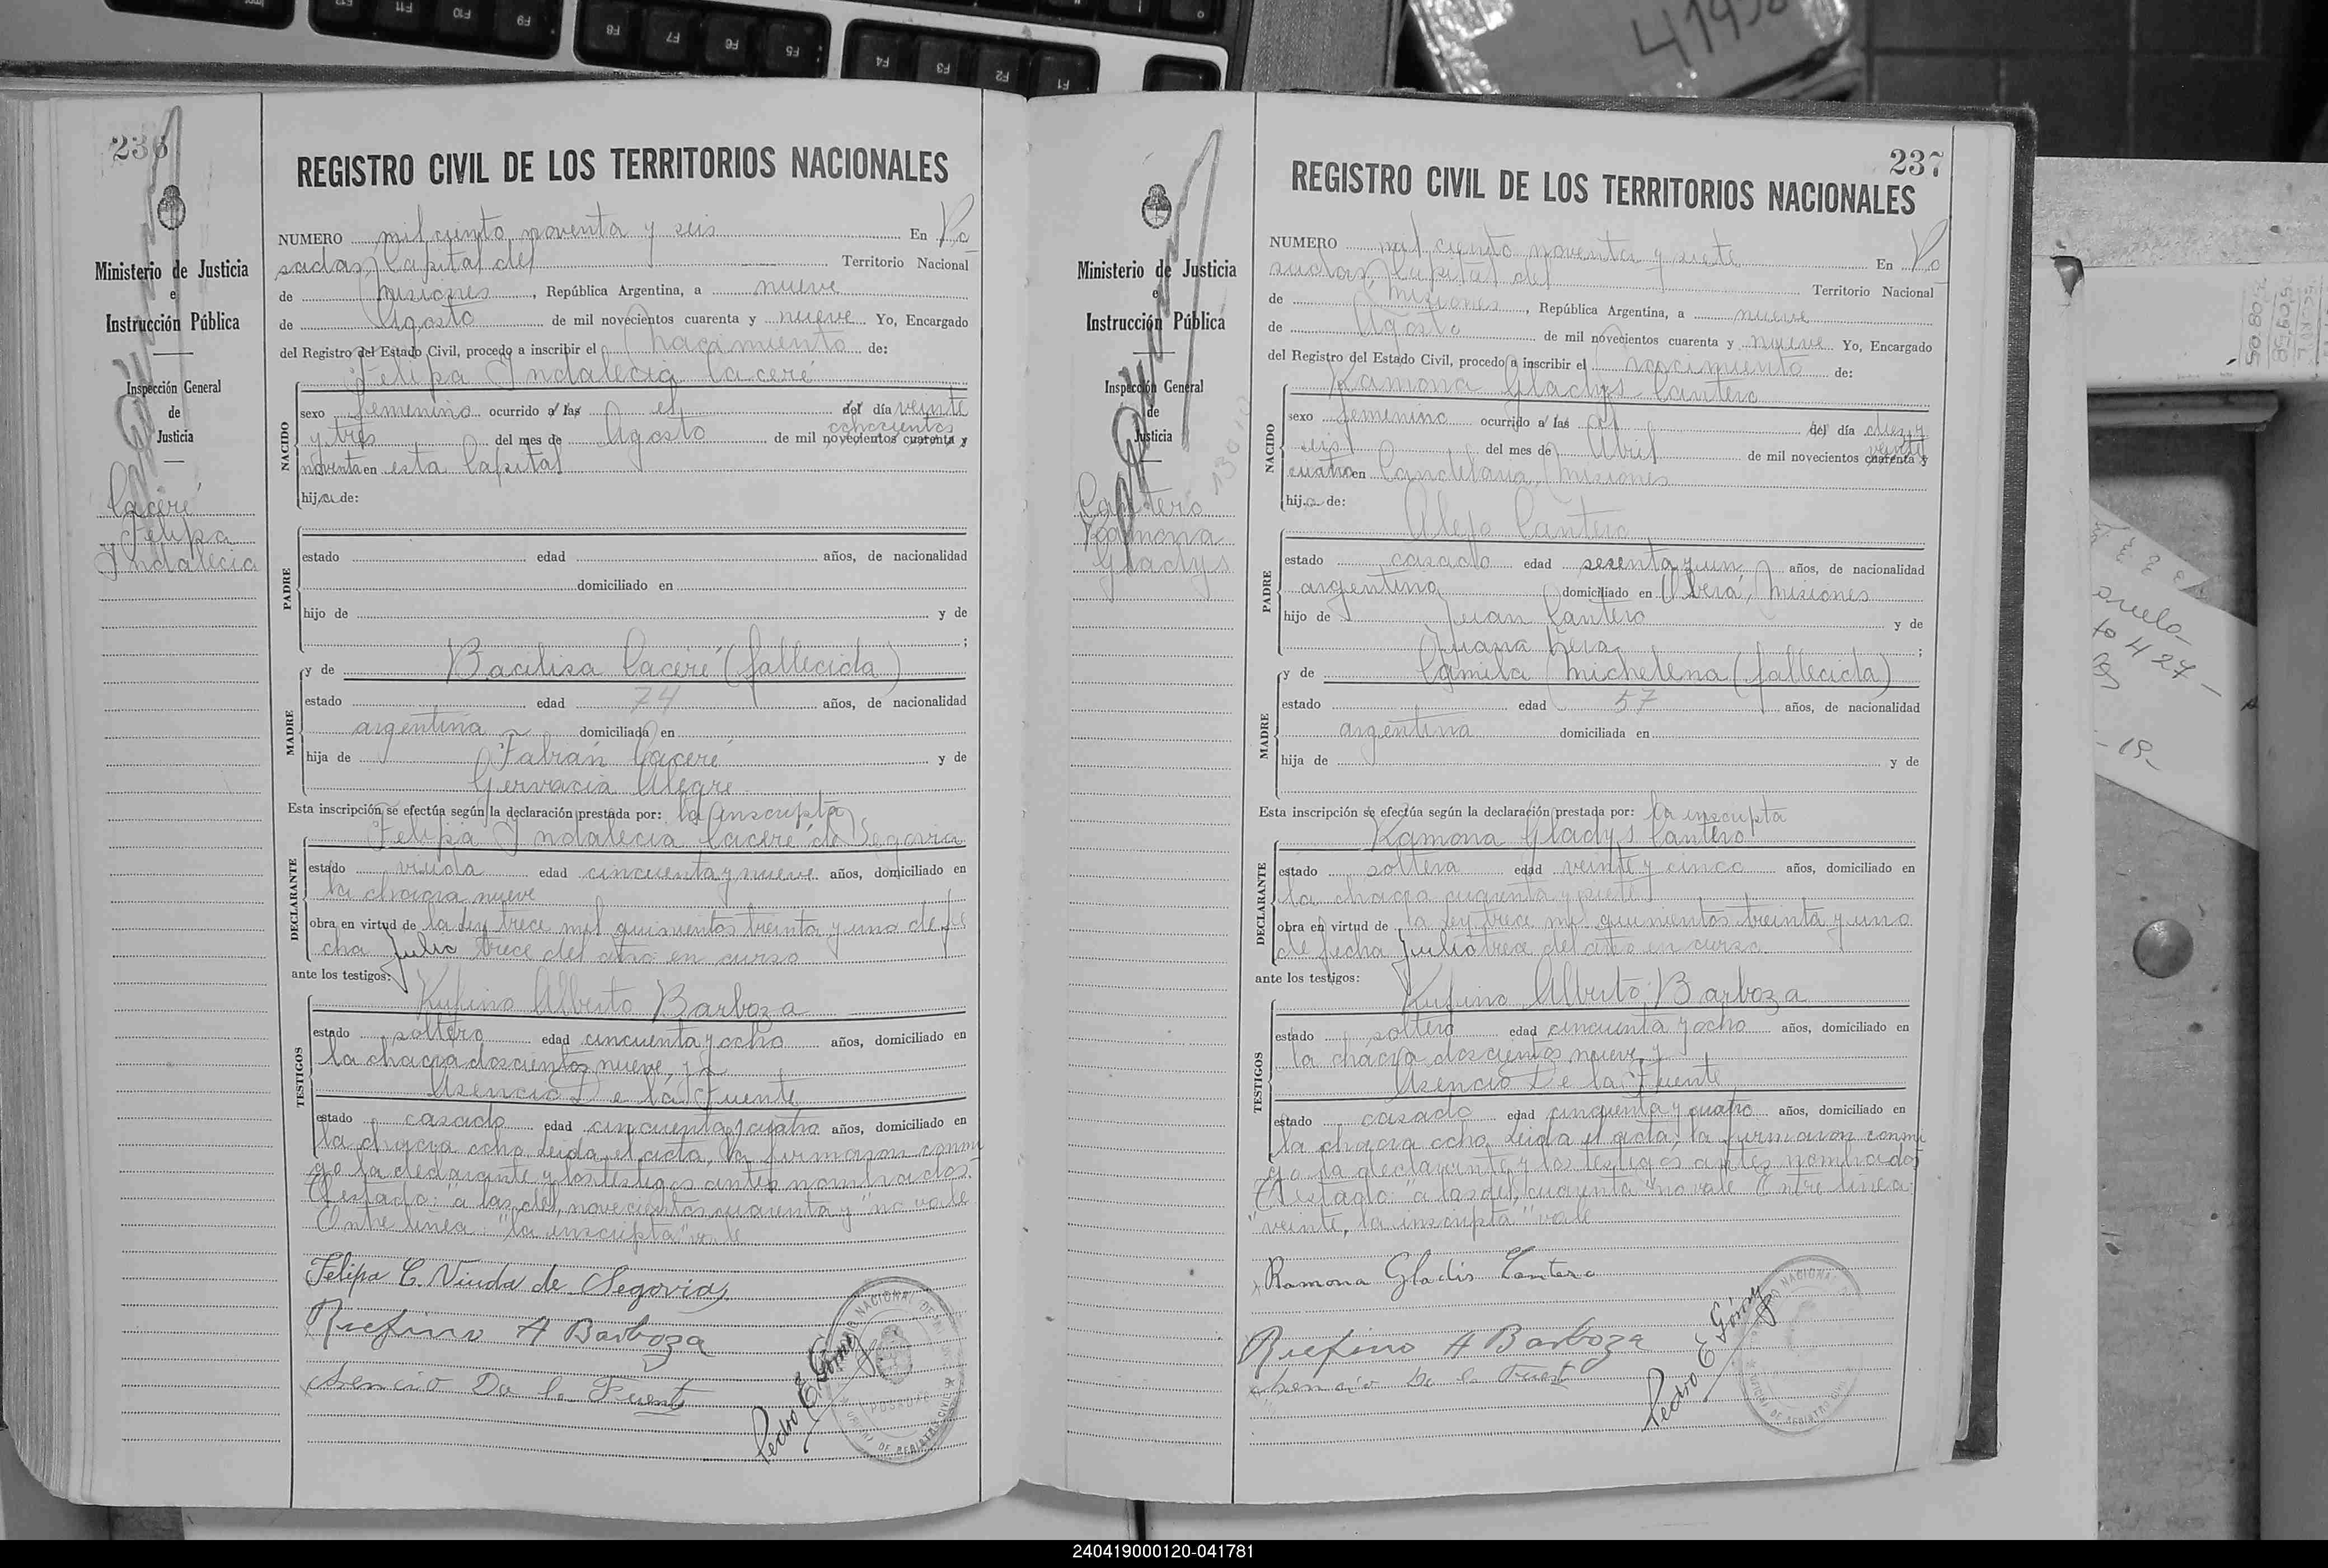 236
REGISTRO CIVIL DE LOS TERRITORIOS NACIONALES
NUMERO mil ciento noventa y seis En Po
sadas, Capital del Territorio Nacional
de Misiones, República Argentina, a nueve
de Agosto de mil novecientos cuarenta y nueve Yo, Encargado
del Registro del Estado Civil, procedo a inscribir el nacimiento de:
Felipa Yndalecia Caceré
sexo femenino ocurrido a las el del día veinte
ochocientos
y tres del mes de Agosto de mil novecientos cuarenta y
noventa en esta Capital
hija de:
NACIDO
Ministerio de Justicia
e
Instrucción Pública
Inspección General
de
Justicia
Caceré
Felipa
Yndalecia
PADRE
estado edad años, de nacionalidad
domiciliado en
hijo de y de
;
MADRE
y de Bacilisa Caceré (fallecida)
estado edad 74 años, de nacionalidad
argentina domiciliada en
hija de Fabián Caceré y de
Gervacia Alegre
Esta inscripción se efectúa según la declaración prestada por: la inscripta
Felipa Yndalecia Caceré de Segovia
DECLARANTE
estado viuda edad cincuenta y nueve años, domiciliado en
la chacra nueve
obra en virtud de la Ley trece mil quinientos treinta y uno de fe
cha Julio trece del año en curso
ante los testigos:
Rufino Alberto Barboza
TESTIGOS
estado soltero edad cincuenta y ocho años, domiciliado en
la chacra doscientos nueve, y
Asencio De la Fuente
estado casado edad cincuenta y cuatro años, domiciliado en
la chacra ocho. Leida el acta, la firmaron conmi
go la declarante y los testigos antes nombrados.
Testado: "a las del, novecientos cuarenta y" no vale
Entre línea: "la inscripta" vale
Felipa C. Viuda de Segovia
Rufino A Barboza
Asencio De la Fuent
Pedro E. Gómez
POSADAS
237
REGISTRO CIVIL DE LOS TERRITORIOS NACIONALES
NUMERO mil ciento noventa y siete En Po
sadas, Capital del Territorio Nacional
de Misiones, República Argentina, a nueve
de Agosto de mil novecientos cuarenta y nueve Yo, Encargado
del Registro del Estado Civil, procedo a inscribir el nacimiento de:
Ramona Gladys Cantero
sexo femenino ocurrido a las el del día diez y
veinte
seis del mes de Abril de mil novecientos cuarenta y
cuatro en Candelaria, Misiones
hija de:
NACIDO
Ministerio de Justicia
e
Instrucción Pública
Inspección General
de
Justicia
Cantero
Ramona
Gladys
PADRE
Alejo Cantero
estado casado edad sesenta y un años, de nacionalidad
argentino domiciliado en Oberá, Misiones
hijo de Juan Cantero y de
Juana Vera ;
MADRE
y de Camila Michelena (fallecida)
estado edad 57 años, de nacionalidad
argentina domiciliada en
hija de y de
Esta inscripción se efectúa según la declaración prestada por: la inscripta
Ramona Gladys Cantero
DECLARANTE
estado soltera edad veinte y cinco años, domiciliado en
la chacra cuarenta y siete
obra en virtud de la Ley trece mil quinientos treinta y uno
de fecha Julio trece del año en curso
ante los testigos:
Rufino Alberto Barboza
TESTIGOS
estado soltero edad cincuenta y ocho años, domiciliado en
la chacra doscientos nueve, y
Asencio De la Fuente
estado casado edad cincuenta y cuatro años, domiciliado en
la chacra ocho. Leida el acta, la firmaron conmi
go la declarante y los testigos antes nombrados
Testado: "a las del, cuarenta" no vale Entre línea:
"veinte, la inscripta" vale
Ramona Gladis Cantero
Rufino A Barboza
Asencio De la Fuent
Pedro E Gómez
240419000120-041781